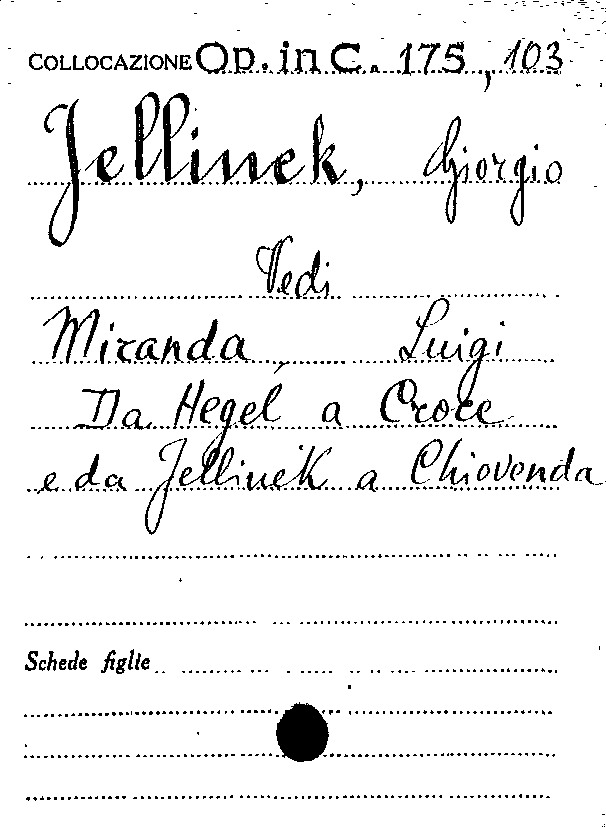 COLLOCAZIONE Op. in C. 175, 103
Jellinek, Giorgio
Vedi
Miranda, Luigi
Da Hegel a Croce
e da Jellinek a Chiovenda
Schede figlie